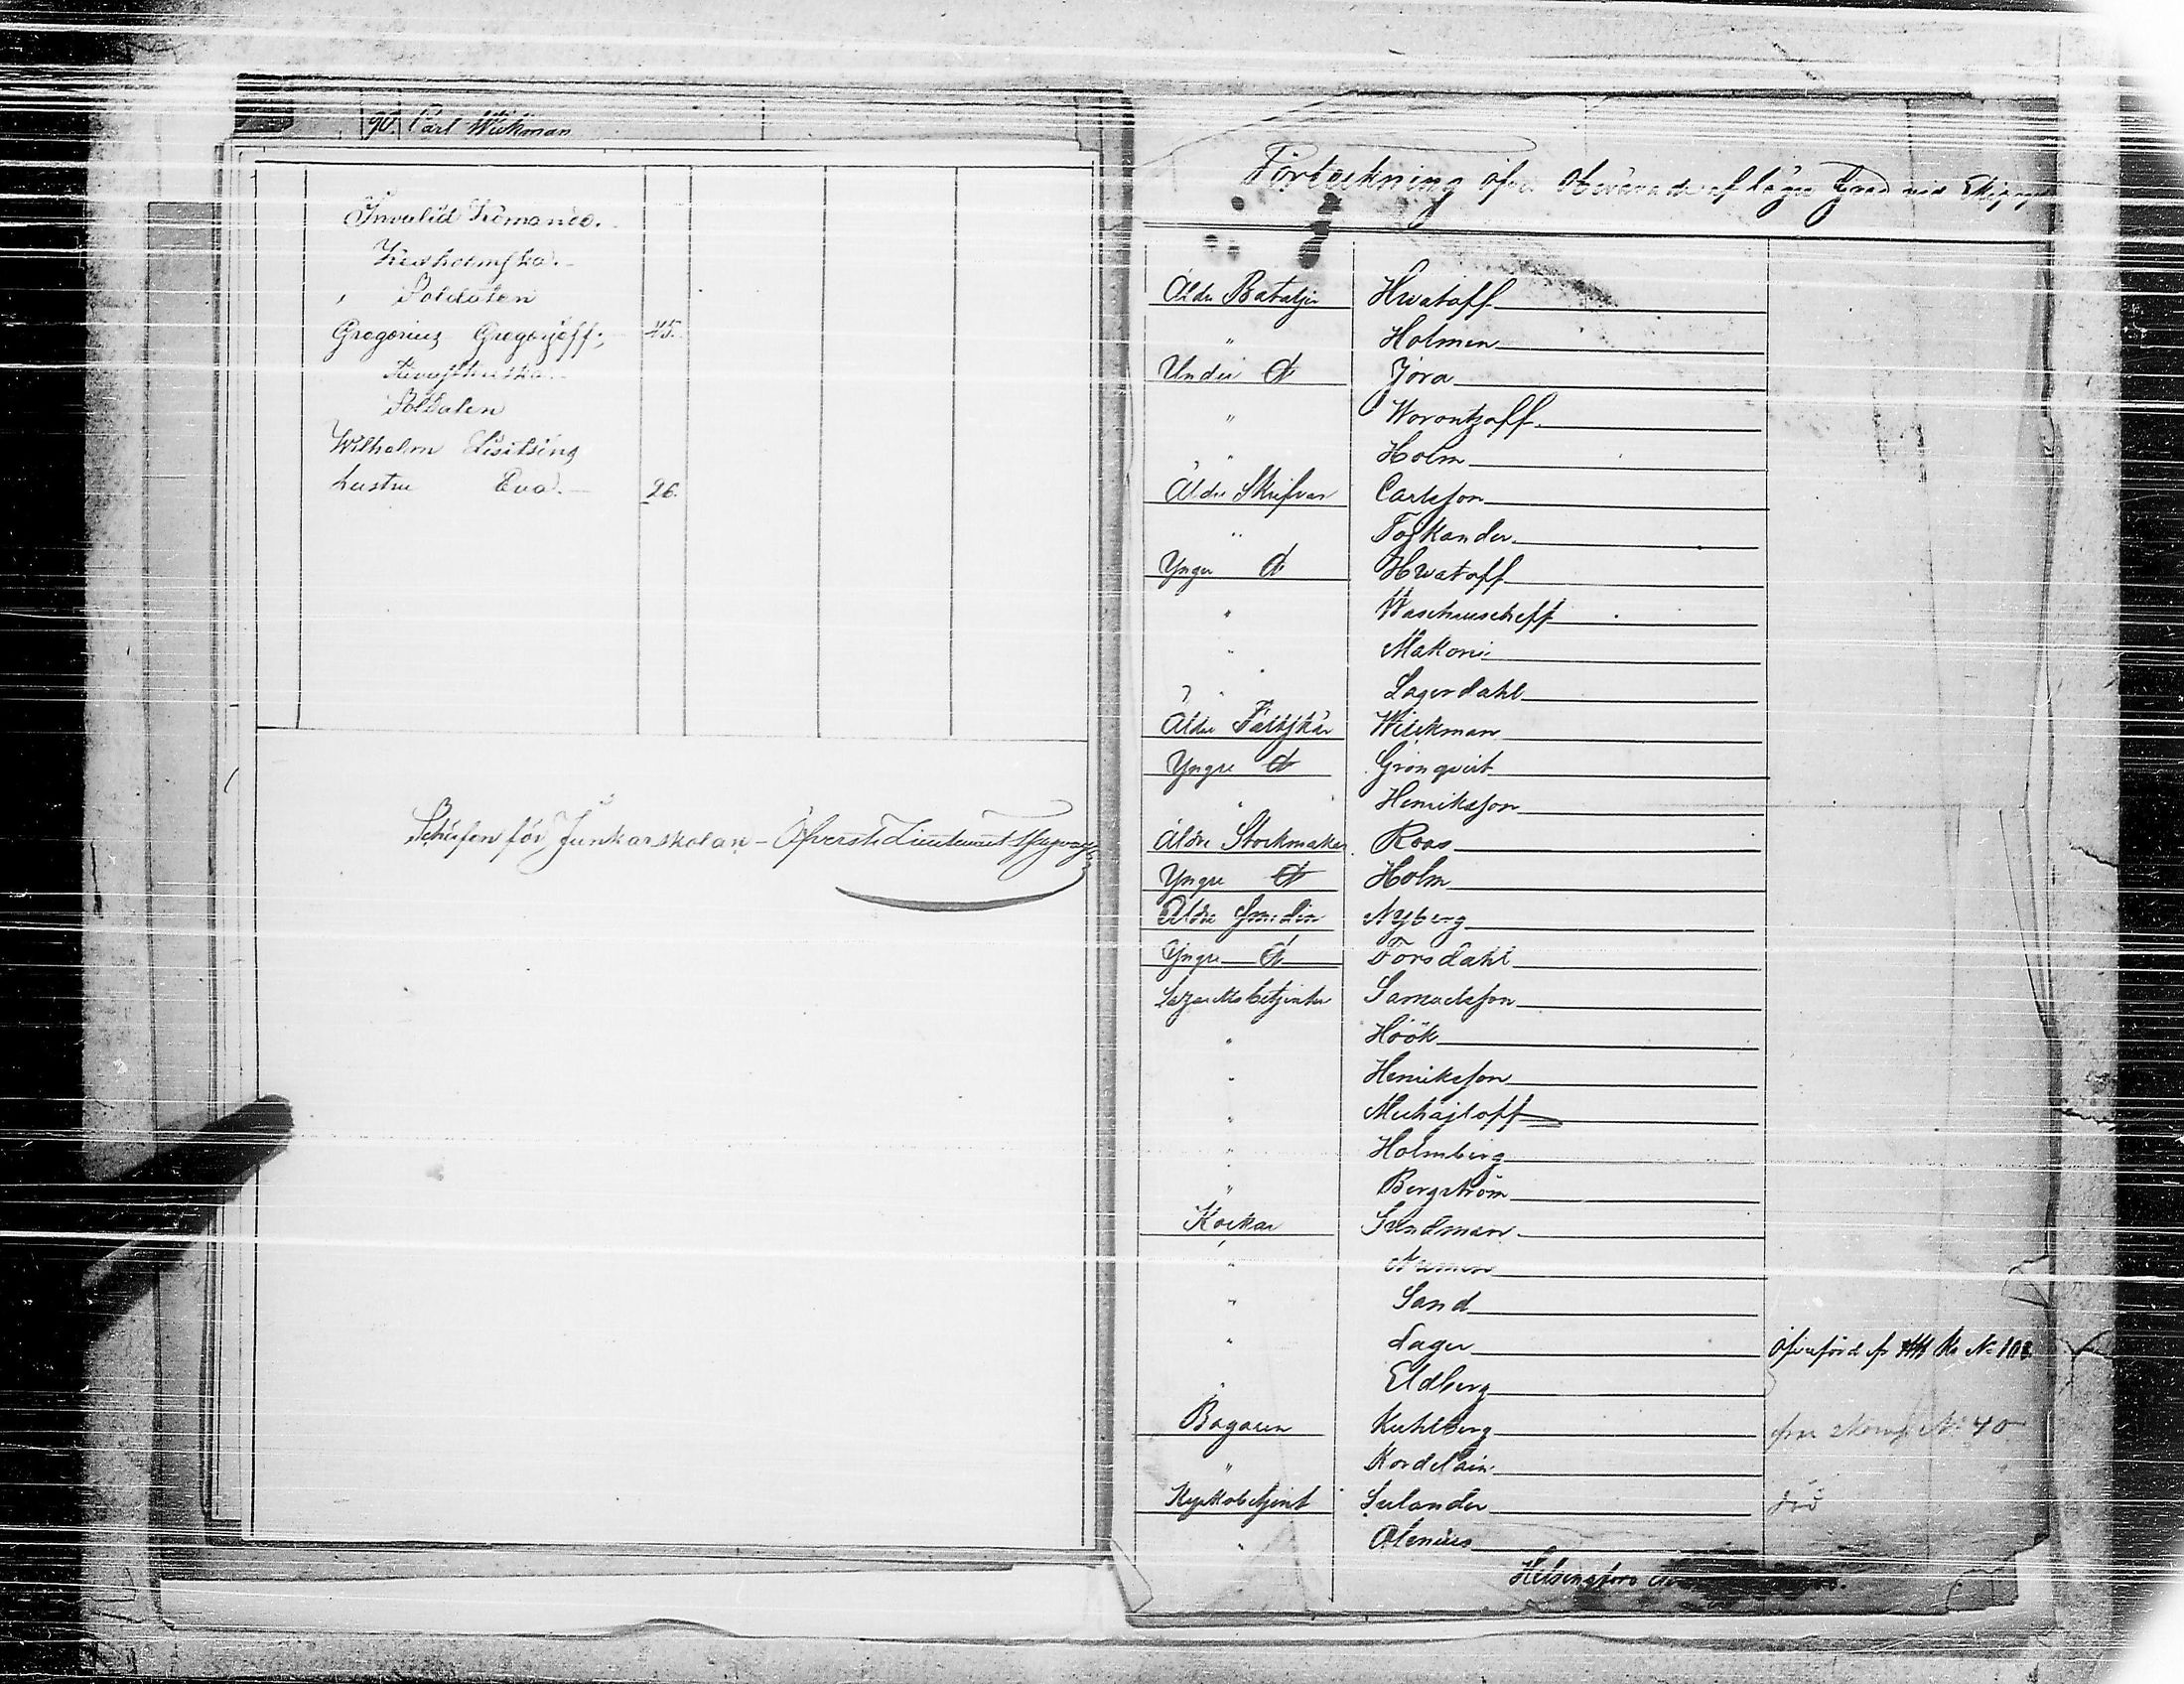 90. Carl Wickman
Invalid Komando.
Kexholmska.
" Soldaten
Gregorius Gregorjeff; 45.
Soldaten
Wilhelm Lisitsing
hustru Eva. 26.
Chefen för Junkarskolan - Öfverste Lieutenant
Förteckning öfver af lägre Grad vid
Äldre Batalje Hwatoff
" Holmen
Under do Jora
" Worontzoff
" Holm
Äldre Skrifvar Carlsson
" Foskander
Yngre do Hwatoff
" Waschuscheff
" Makoni
" Lagerdahl
Äldre Fältskär Wickman
Yngre do Grönqvist
" Henriksson
Äldre Stockmakar Roos
Yngre do Holm
Äldre Smeden Nyberg
Yngre do Forsdahl
Lazarettsbetjenter Samuelsson
" Höök
" Henriksson
" Michajloff
" Holmberg
" Bergström
Kockar Sandman
" Numen
" Sand
" Lager Öfverförd No 103
" Eldberg
Bagaren Kuhlberg No 40
" Kordelain
Kyrkobetjent Selander
" Alenius
Helsingfors